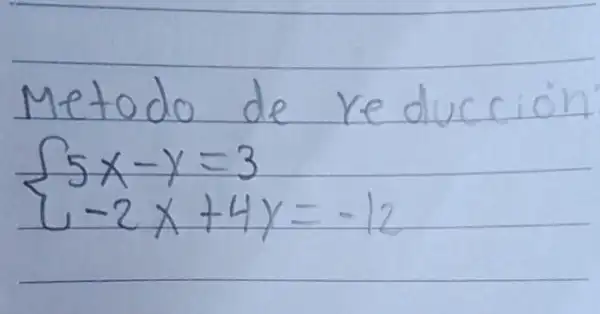 Metodo de reducción:
{5x-y=3
{-2x+4y=-12